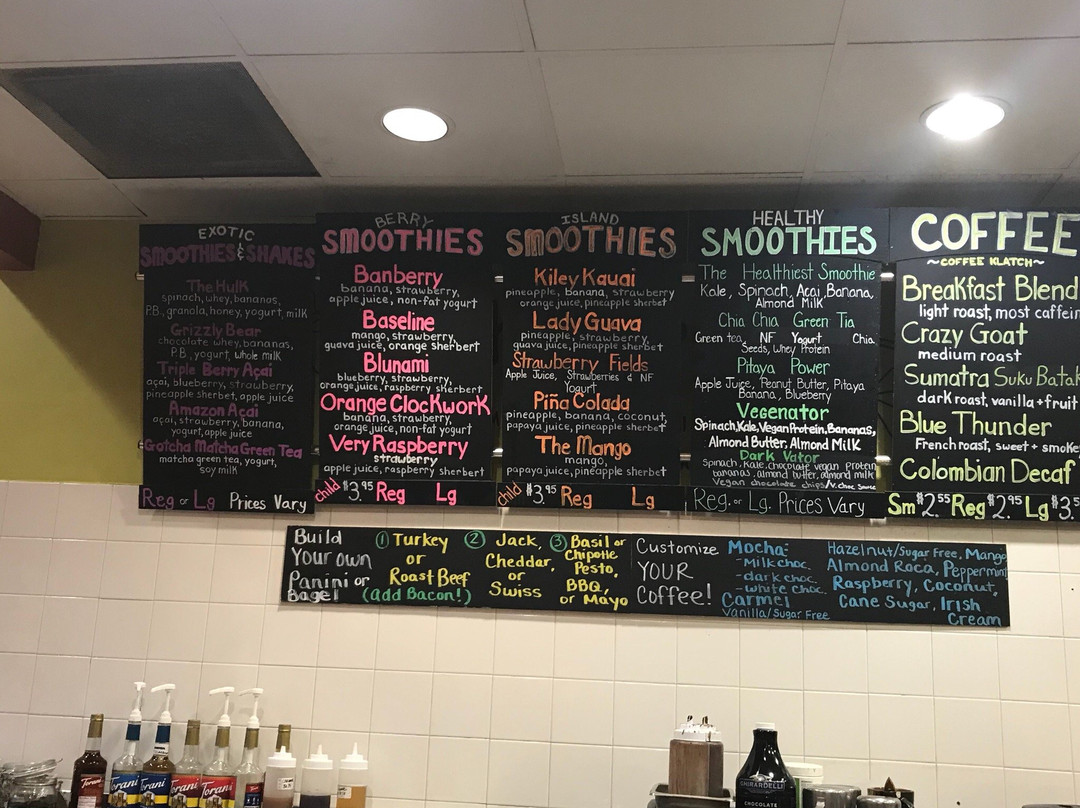 EXOTIC
SMOOTHIES & SHAKES
The Hulk
spinach, whey, bananas,
P.B., granola, honey, yogurt, milk
Grizzly Bear
chocolate whey, bananas,
P.B., yogurt, whole milk
Triple Berry Açai
açai, blueberry, strawberry,
pineapple sherbet, apple juice
Amazon Acai
açai, strawberry, banana,
yogurt, apple juice
Gotcha Matcha Green Tea
matcha green tea, yogurt,
soy milk
Reg or Lg Prices Vary
BERRY
SMOOTHIES
Banberry
banana, strawberry,
apple juice, non-fat yogurt
Baseline
mango, strawberry,
guava juice, orange sherbert
Blunami
blueberry, strawberry,
orange juice, raspberry sherbert
Orange Clockwork
banana, strawberry,
orange juice, non-fat yogurt
Very Raspberry
strawberry
apple juice, raspberry sherbert
child $3.95 Reg Lg
ISLAND
SMOOTHIES
Kiley Kauai
pineapple, banana, strawberry
orange juice, pineapple sherbet
Lady Guava
pineapple, strawberry,
guava juice, pineapple sherbet
Strawberry Fields
Apple Juice, Strawberries & NF
Yogurt
Piña Colada
pineapple, banana, coconut,
papaya juice, pineapple sherbet
The Mango
mango,
papaya juice, pineapple sherbet
child $3.95 Reg Lg
HEALTHY
SMOOTHIES
The Healthiest Smoothie
Kale, Spinach, Acai, Banana,
Almond Milk
Chia Chia Green Tia
Green tea, NF Yogurt Chia
Seeds, Whey Protein
Pitaya Power
Apple Juice, Peanut Butter, Pitaya
Banana, Blueberry
Vegenator
Spinach, Kale, Vegan Protein, Bananas,
Almond Butter, Almond Milk
Dark Vator
Spinach, Kale, chocolate vegan protein
bananas, almond butter, almond milk
Vegan chocolate chips/v. choc sauce
Reg. or Lg. Prices Vary
COFFEE
~COFFEE KLATCH~
Breakfast Blend
light roast, most caffein
Crazy Goat
medium roast
Sumatra Suku Batak
dark roast, vanilla + fruit
Blue Thunder
French roast, sweet + smoke
Colombian Decaf
Sm $2.55 Reg $2.95 Lg $3.5
Build
Your own
Panini or
Bagel
① Turkey
or
Roast Beef
(add Bacon!)
② Jack,
Cheddar,
or
Swiss
③ Basil or
Chipotle
Pesto,
BBQ,
or Mayo
Customize
YOUR
Coffee!
Mocha:
-Milk choc.
-dark choc.
-white choc.
Carmel
Vanilla/Sugar Free
Hazelnut/Sugar Free, Mango
Almond Roca, Peppermint
Raspberry, Coconut,
Cane Sugar, Irish
Cream
TORANI
Torani
Torani
Torani
Torani
GHIRARDELLI
CHOCOLATE